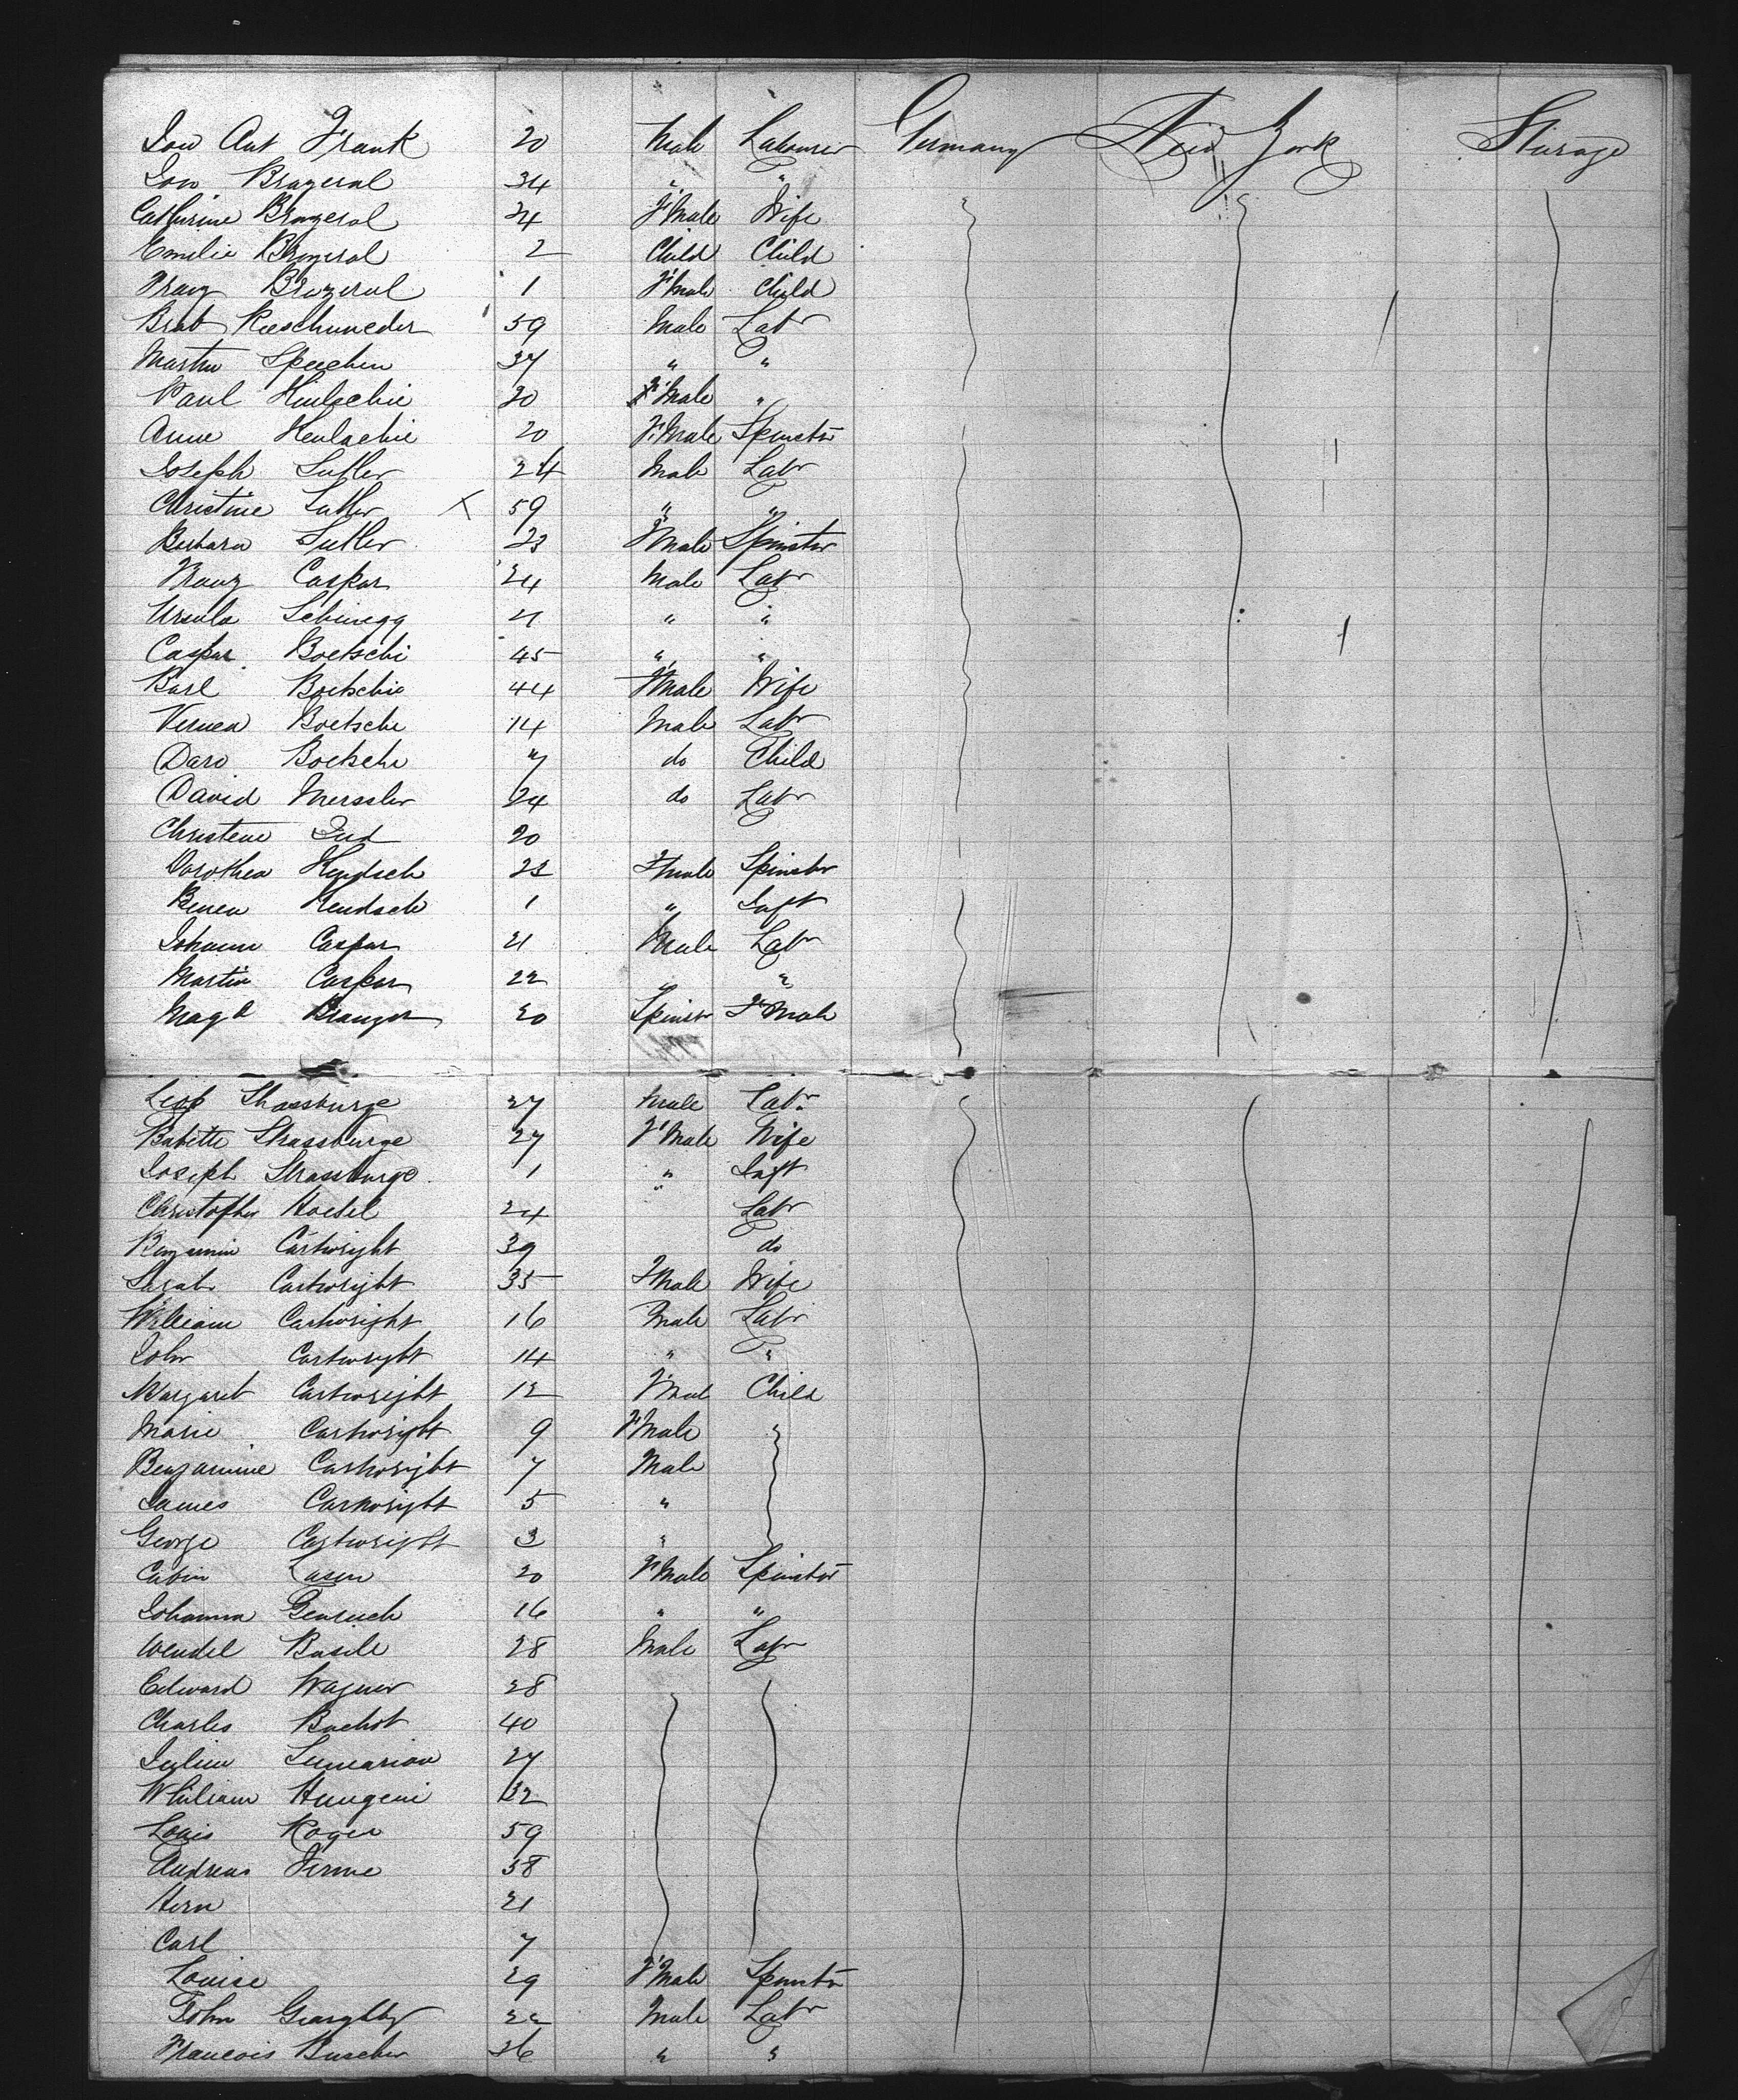 Jow Ant Frank 20 Male Labourer Germany New York Stirage
Jow Brazerol 34 " "
Catherine Brazerol 24 F'Male Wife
Emilie Brazerol 2 Child Child
Franz Brazerol 1 F'Male Child
Brat 59 Male Labr
Martin Speechen 37 " "
Paul Hinlschie 20 F'Male "
Anne Henlschie 20 F.Male Spinstr
Joseph Sutler 24 Male Labr
Christine Sutler X 59 " "
Barbara Sutler 23 F'Male Spinster
Franz Caspar 24 Male Labr
Ursula 21 " "
Caspar Boetschi 45 " "
Barl Boetschie 44 F'Male Wife
Vernea Boetsche 14 Male Labr
Daro Boetsche 7 do Child
David Merssler 24 do Labr
Christene Jud 20
Dorothea Hendsch 23 F'male Spinster
Benea Hendsch 1 " Inft
Johann Caspar 21 Male Labr
Martin Caspar 22 " "
Magd Branger 20 Spinstr F'Male
Leop Strassburge 27 Male Labr
Babette Strassburge 27 F'Male Wife
Joseph Strassburge 1 " Inft
Christopher Hoesel 24 " Labr
Benjamin Cartwright 39 do
Sarah Cartwright 35 F'Male Wife
William Cartwright 16 Male Labr
John Cartwright 14 " "
Margaret Cartwright 12 F'Mal Child
Marie Cartwright 9 F'Male "
Benjamine Cartwright 7 Male
James Cartwright 5 "
George Cartwright 3 "
Cabin Lasen 20 F'Male Spinster
Johanna Genruch 16 " "
Wendel Basile 28 Male Labr
Edward Wagner 28
Charles Bachot 40
Julien Lumarion 27
Whiliam Hungeni 32
Louis Roger 59
Andreas Firme 38
Hern 21
Carl 7
Louise 29 F'Male Spinstr
John Garaghty 22 Male Labr
Francois Buscher 36 " "